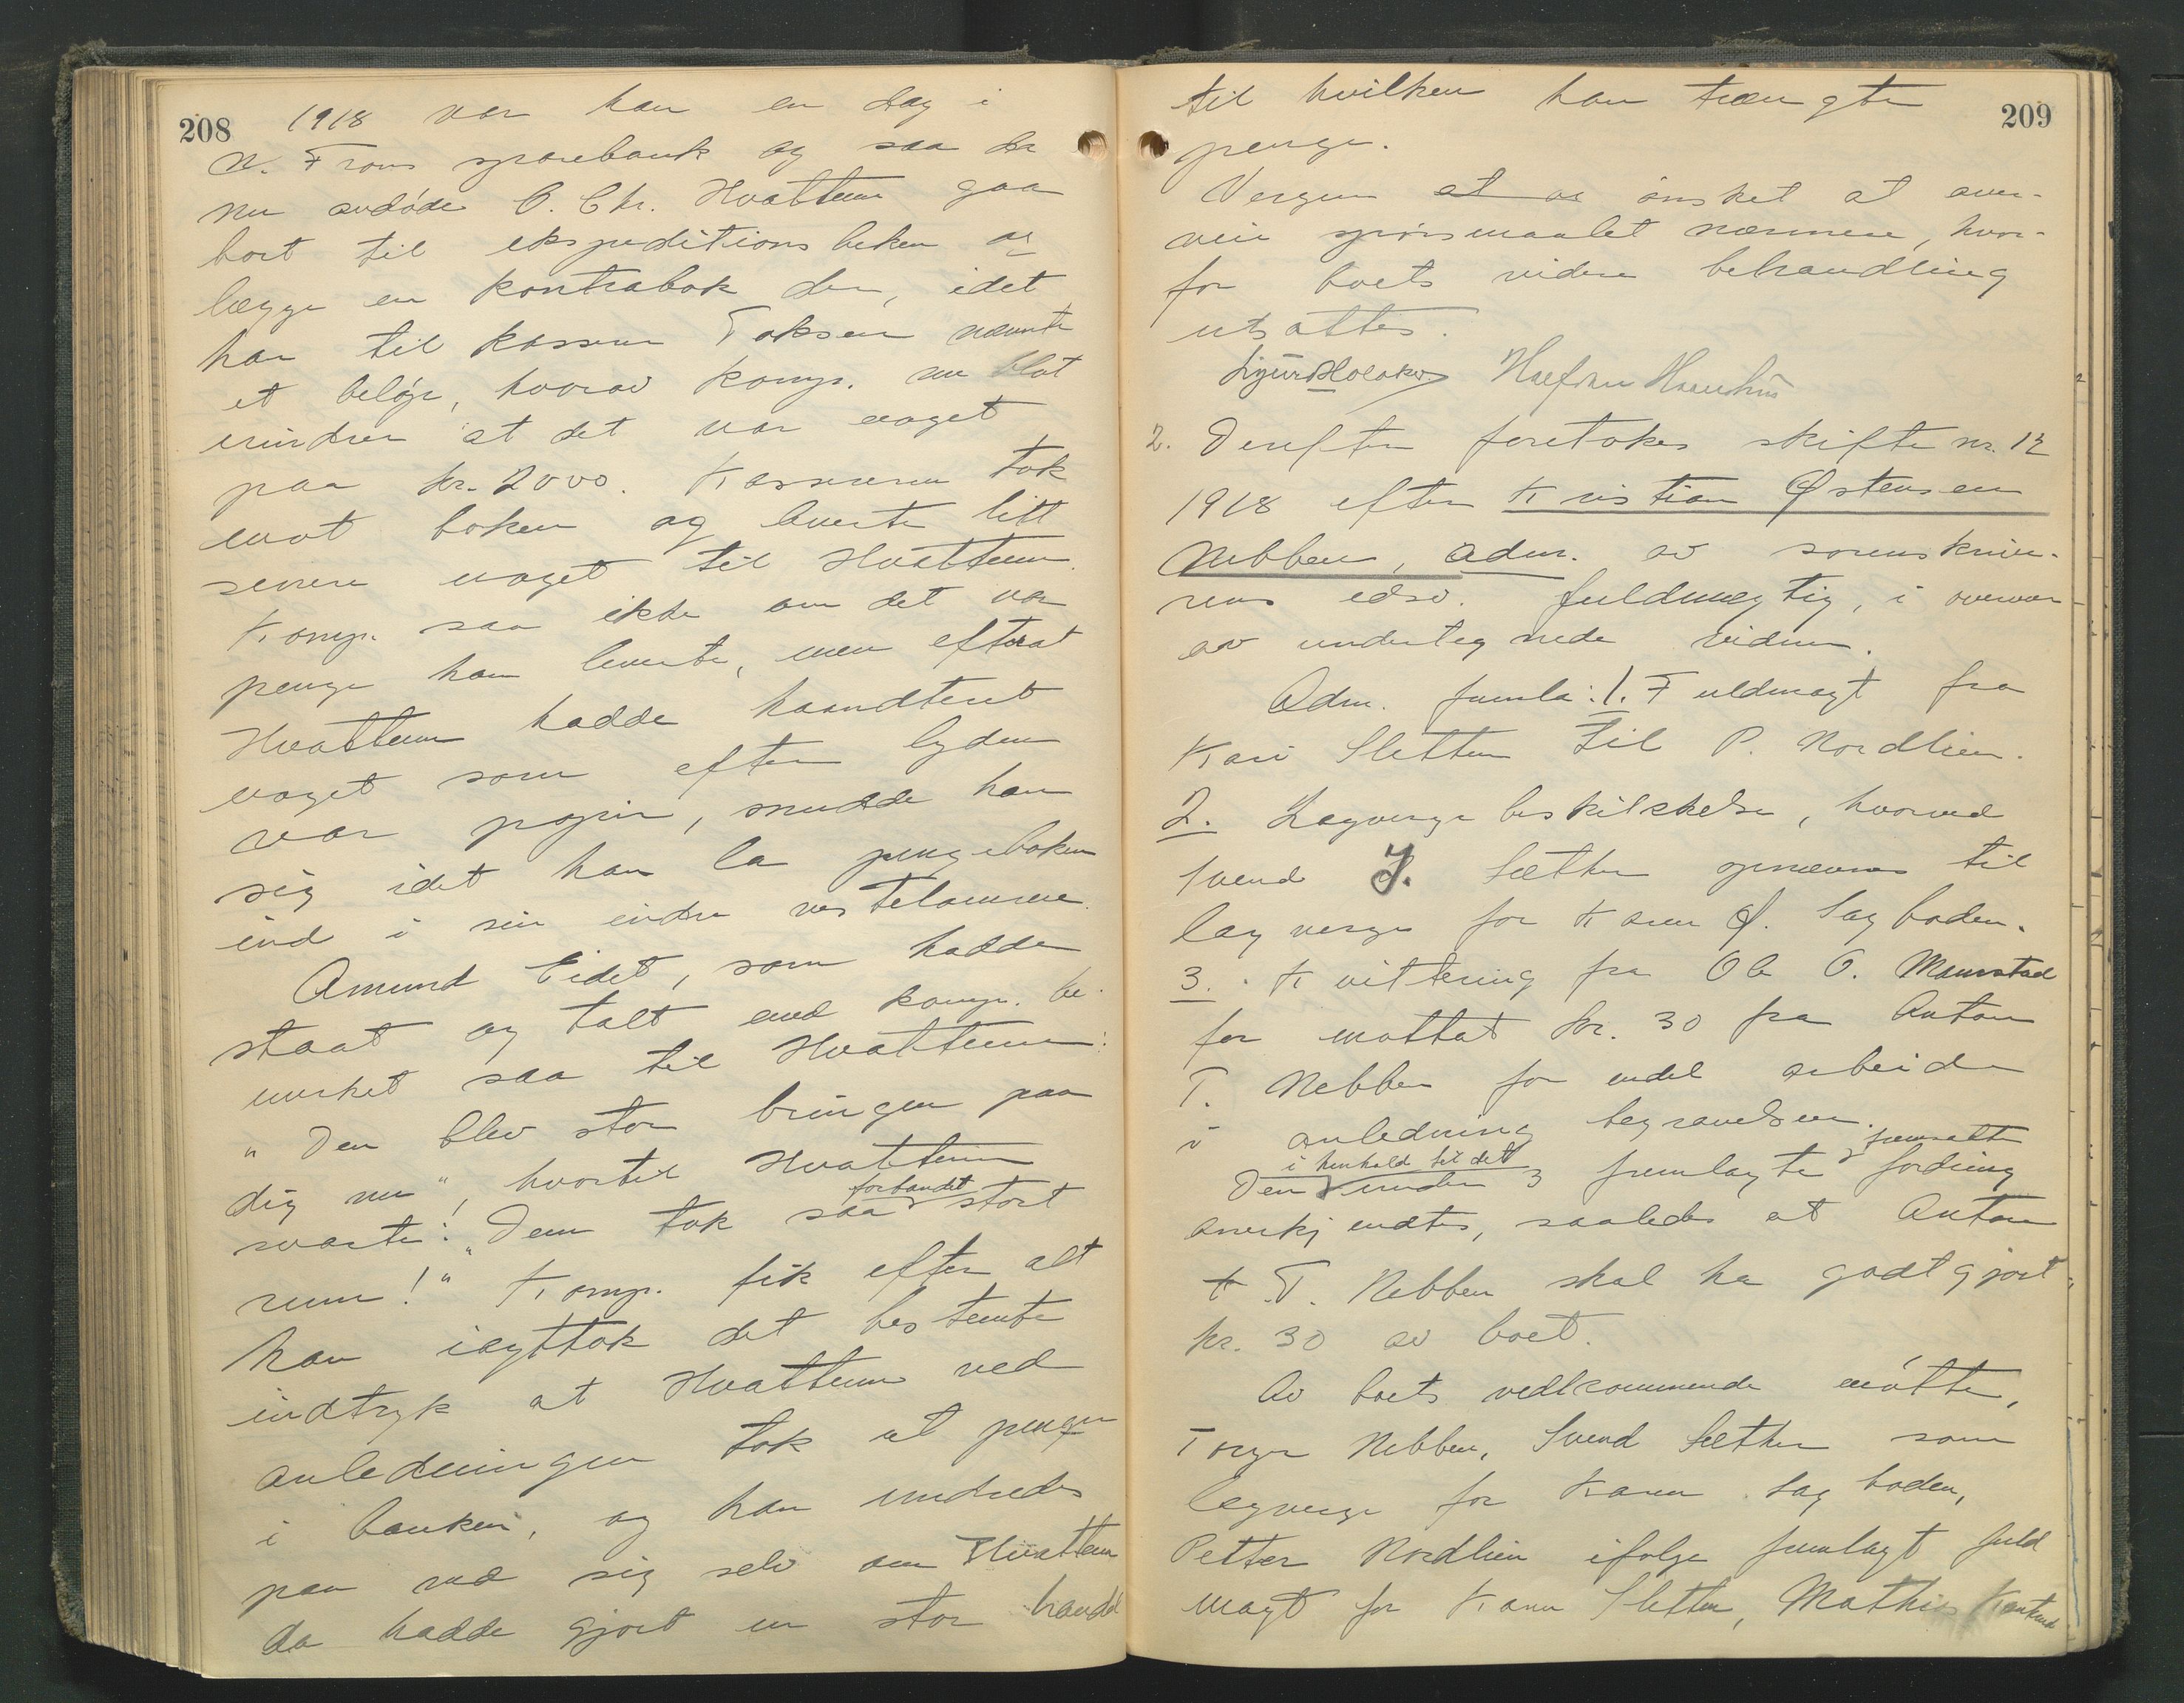 208
1918 var han en dag i
N. Frons sparebank og saa da
nu avdøde O. Chr. Hvattum gaa
bort til ekspeditionsbeken og
lægge en kontrabok der, idet
han til kasserer Toksen nævnte
et beløp, hvorav komp. nu blot
mindres at det var noget
paa kr. 2000. Kassereren tok
mot boken og leverte litt
senere noget til Hvattum.
Komp. saa ikke om det var
penger han leverte, men efterat
Hvattum hadde haandtert
noget som efter lyden
var papir, snudde han
sig idet han la pengeboken
ind i sin indre vestelomme.
Amund Eidet, som hadde
staat og talt med komp. be-
merket saa til Hvattum:
"Den blev stor bringen paa
dig nu", hvortil Hvattum
forbandet
svarte: "Den tok saa stort
rum!" Komp. fik efter alt
han iagttok det bestemte
indtryk at Hvattum ved
anledningen tok ut penger
i banken, og han undredes
paa ved sig selv om Hvattum
da hadde gjort en stor handel
209
til hvilken han trængte
penge.
Vergen at os ønsket at over-
veie spørsmaalet nærmere, hvor-
for boets videre behandling
utsattes.
2. Derefter foretokes skifte nr. 12
1918 efter Kristian Østensen
Nebben, adm. av sorenskrive-
rens edsv. fuldmegtig, i overvær
av undertegnede vidner.
Adm. fremla: 1. Fuldmagt fra
Kari Sletten til P. Nordlien.
2. Lagvergebeskikkelse, hvorved
Svend J. Sæther opnævnes til
lagverge for Karen Ø. Sagboden.
3. Kvittering fra Ole O. Maurstad
for mottat kr. 30 fra Anton
T. Nebben for endel arbeide
i anledning begravelsen.
i henhold til det fremsatte
Den under 3 fremlagte fordring
anerkjendtes, saaledes at Anton
K. T. Nebben skal ha godtgjort
kr. 30 av boet.
Av boets vedkommende møtte,
Torger Nebben, Svend Sæther som
lagverge for Karen Sagboden,
Petter Nordlien ifølge fremlagt fuld
magt for Karen Sletten, Mathis